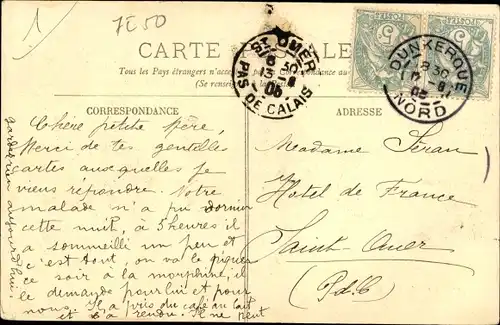 1
7E50
CARTE POSTALE
Tous les Pays étrangers n'acceptent
Correspondance au
(Se renseigner à la
ST OMER
6 30
13 - 8
06
PAS DE CALAIS
POSTES
POSTES
5
5
DUNKERQUE
8 30
8
06
NORD
CORRESPONDANCE
ADRESSE
Chère petite Mère,
Merci de tes gentilles
cartes auxquelles je
viens répondre. Notre
malade n'a pu dormir
cette nuit, à 5 heures il
a sommeillé un peu et
c'est tout, on va le piquer
ce soir à la morphine, il
le demande pour lui et pour
nous. Il a pris du café au lait
et il a rendu. Il ne peut
garder rien aujourd'hui.
Madame Séran
Hotel de France
Saint-Omer
(P.d.C)